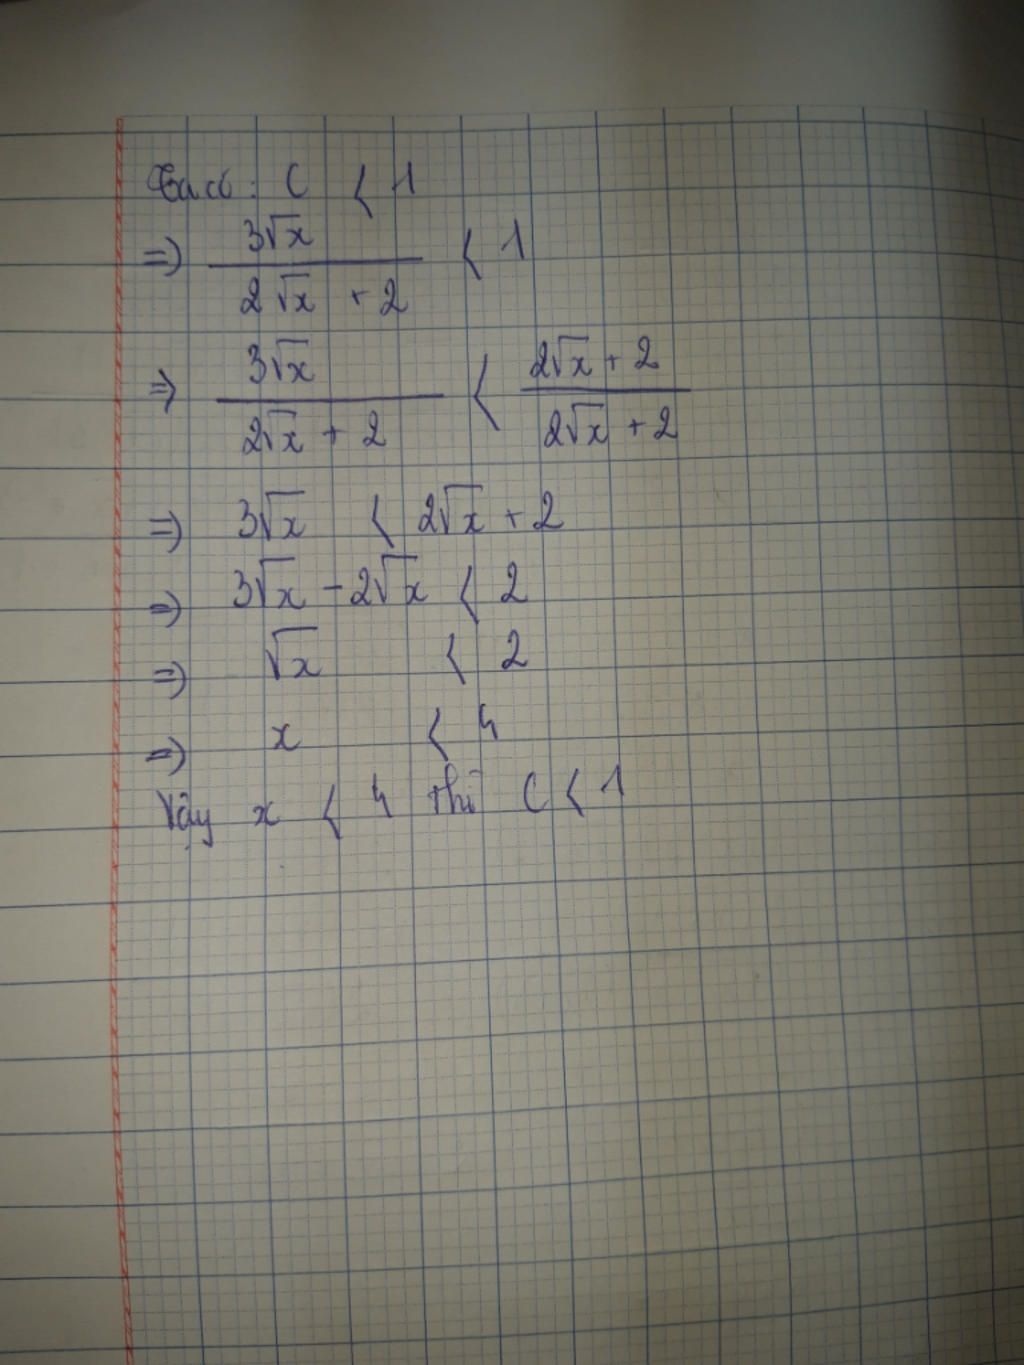 Ta có: C < 1
=> 3√x / 2√x + 2 < 1
=> 3√x / 2√x + 2 < 2√x + 2 / 2√x + 2
=> 3√x < 2√x + 2
=> 3√x - 2√x < 2
=> √x < 2
=> x < 4
Vậy x < 4 thì C < 1